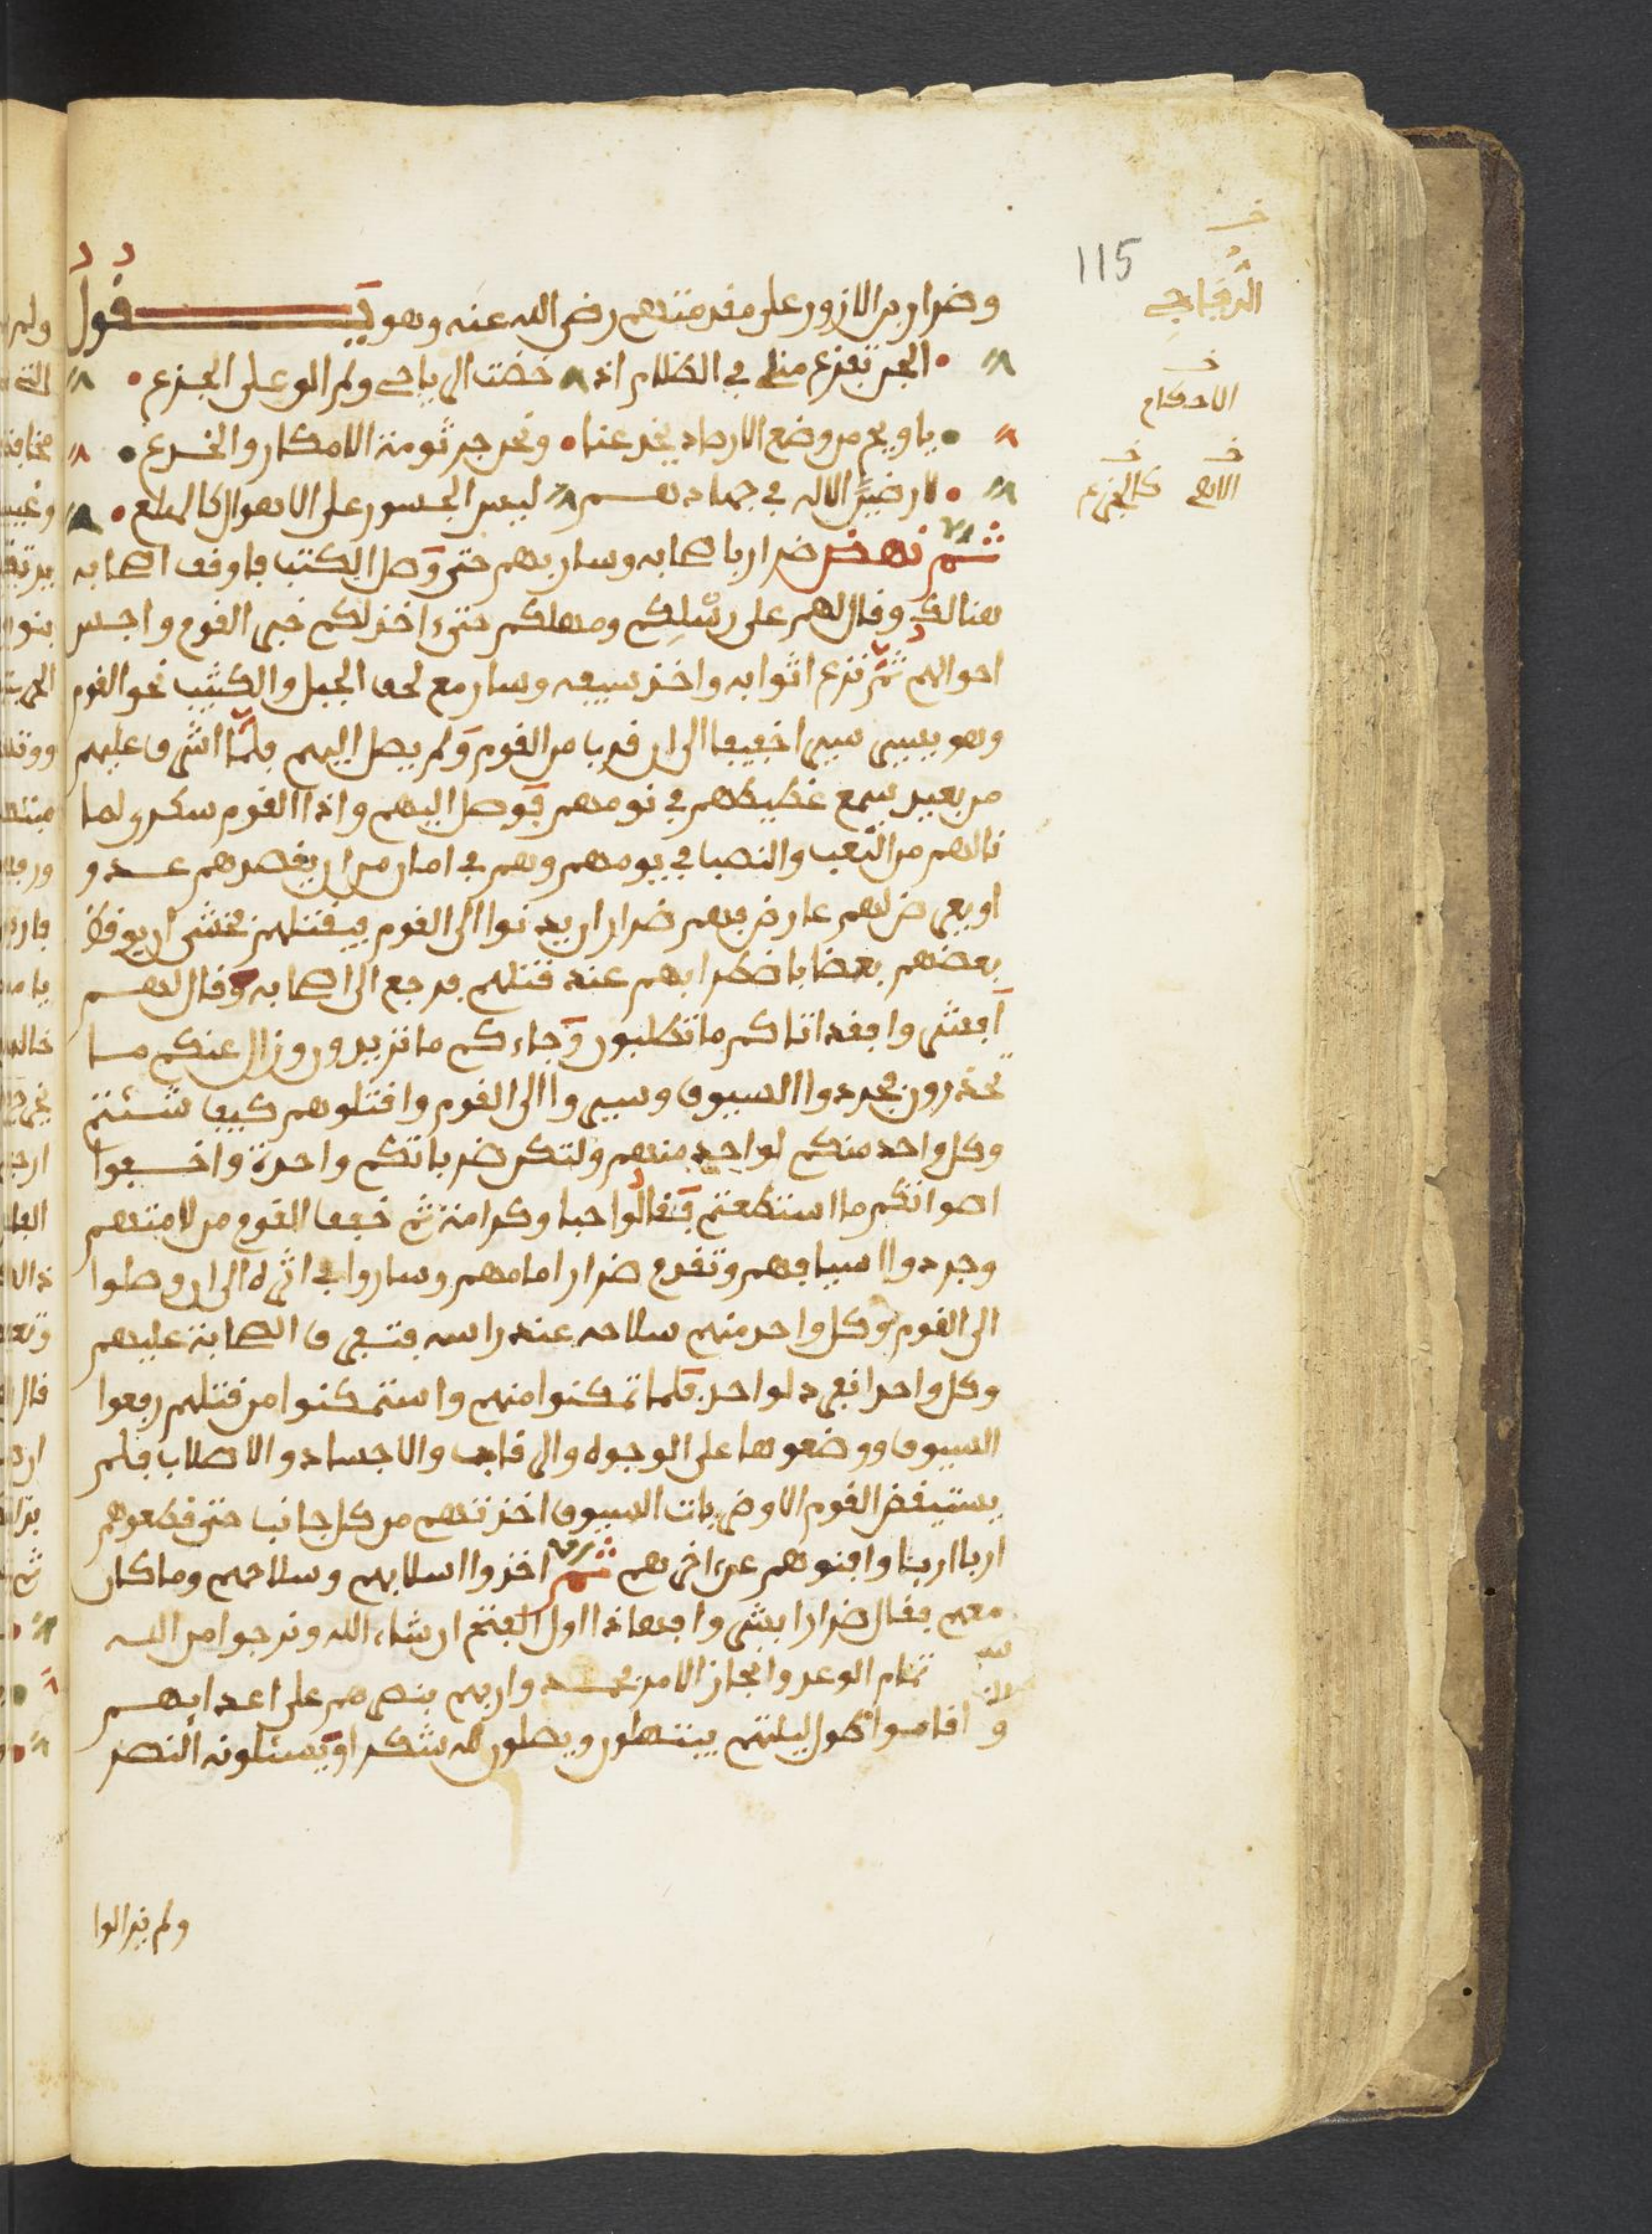 115
وضرار بن الازور على مقدمتهم رضي الله عنه وهو يقول
الجن تفزع مني في الظلام اذا خضت الرياحي ولم الو على الجزع
يا ويح من وضع الارصاد يخدعنا ونحن جرثومة الامكار والخدع
لارضين الاله في جهادهم ليس الجسور على الاهوال كالهلع
ثم نهض ضرار باصحابه وسار بهم حتى وصل الكثب فاوقف اصحابه
هنالك وقال لهم على رسلكم ومهلكم حتى ءاخذ لكم خبر القوم واجس
احوالهم ثم نزع اثوابه واخذ سيفه وسار مع لحف الجبل والكثيب نحو القوم
وهو يسير سيرا خفيفا الى ان قربا من القوم ولم يصل اليهم فلما اشرف عليهم
من بعيد سمع غطيطهم في نومهم فوصل اليهم واذا القوم سكرى لما
نالهم من التعب والنصب في يومهم وهم في امان من ان يقصدهم عدو
او يعرض لهم عارض فهم ضرار ان يدنوا الى القوم فيقتلهم فخشى ان يوقظ
بعضهم بعضا باضطرابهم عند قتلهم فرجع الى اصحابه وقال لهم
ابشروا فقد اتاكم ما تطلبون وجاءكم ما تريدون وزال عنكم ما
تحذرون فجردوا السيوف وسيروا الى القوم واقتلوهم كيف شئتم
وكل واحد منكم لواحد منهم ولتكن ضرباتكم واحدة واخفوا
اصواتكم ما استطعتم فقالوا حبا وكرامة ثم خفف القوم من لامتهم
وجردوا اسيافهم وتقدم ضرار امامهم وساروا في اثره الى ان وصلوا
الى القوم وكل واحد منهم سلاحه عند راسه فتفرق الصحابة عليهم
وكل واحد انفرد لواحد فلما تمكنوا منهم واستمكنوا من قتلهم رفعوا
السيوف ووضعوها على الوجوه والرقاب والاجساد والاصلاب فلم
يستيقض القوم الا وضربات السيوف اخذتهم من كل جانب حتى قطعوهم
اربا اربا وافنوهم عن ءاخرهم ثم اخذوا اسلابهم وسلاحهم وما كان
معهم فقال ضرار ابشروا فهاذا اول الفتح ان شاء الله ونرجوا من الله
تمام الوعد وانجاز الامر فحمدوا ربهم بنصرهم على اعدايهم
واقاموا طول ليلتهم يبتهلون ويصلون لله شكرا ويسئلونه النصر
ولم يزالوا
الاحكام
كالجزع